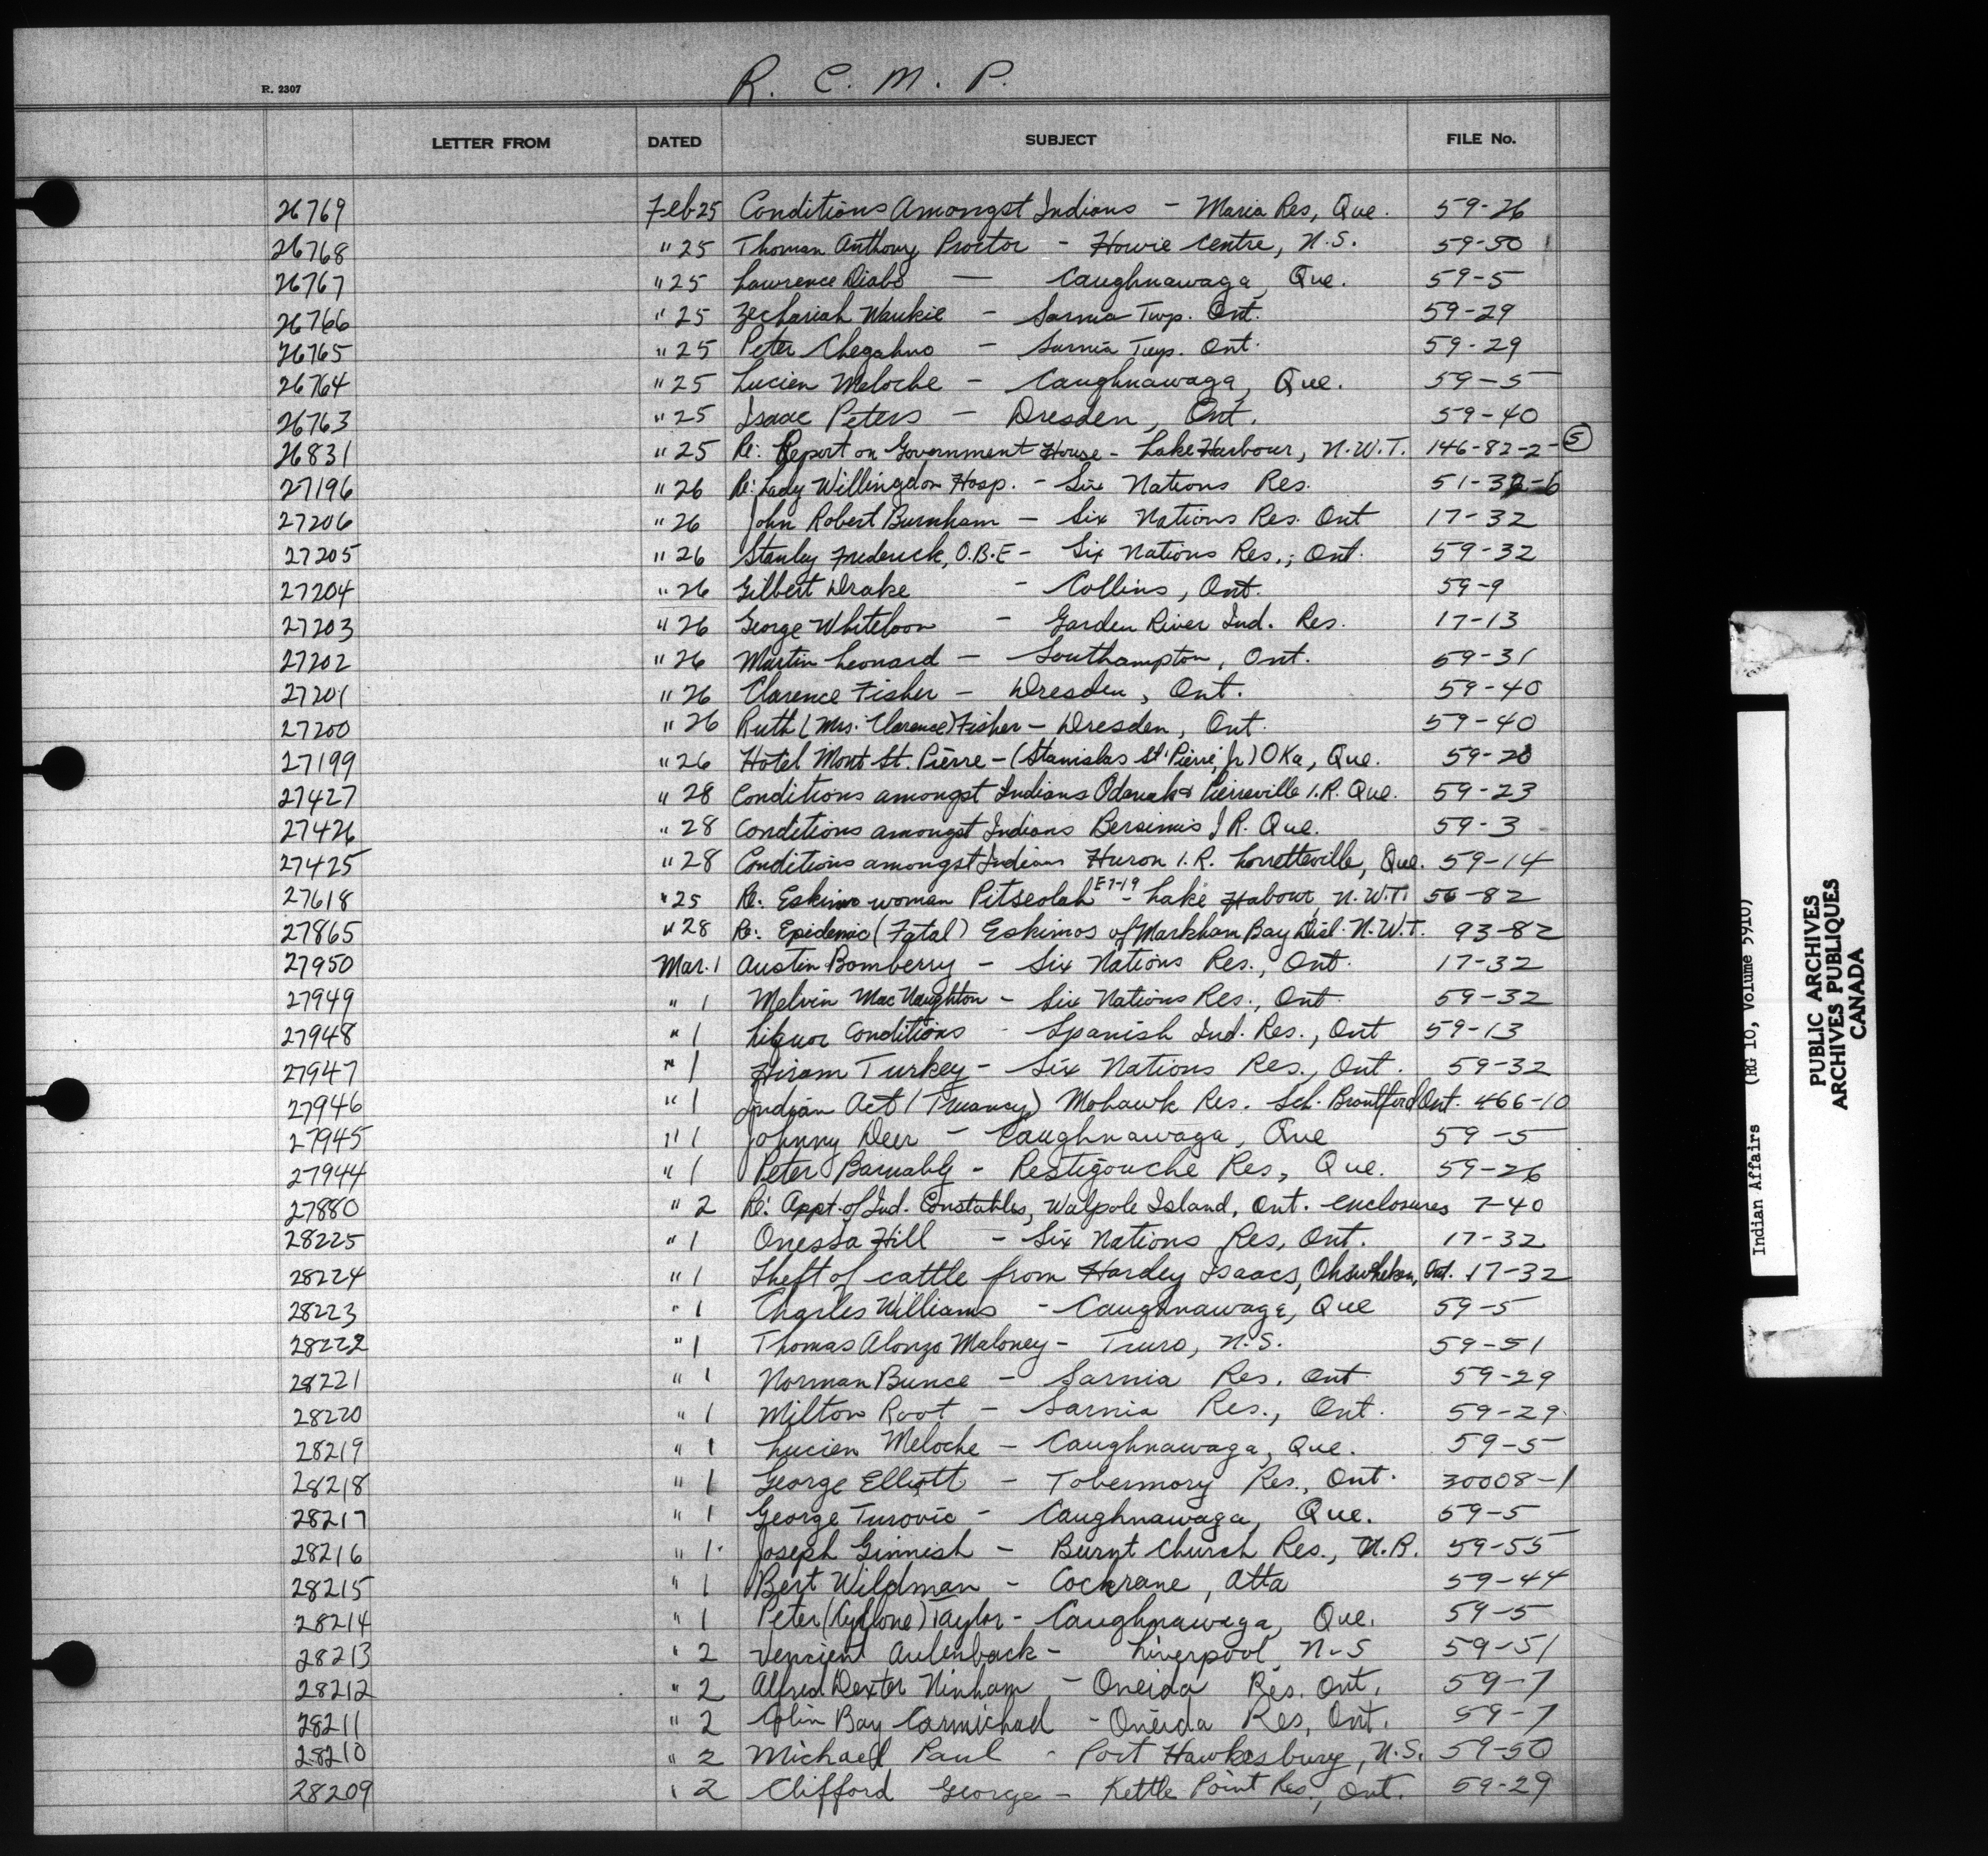 R. 2307
R. C. M. P.
LETTER FROM DATED SUBJECT FILE No.
26769 Feb 25 Conditions Amongst Indians - Maria Res, Que. 59-26
26768 " 25 Thoman Anthony Proctor - Howie Centre, N.S. 59-50
26767 " 25 Lawrence Diabo — Caughnawaga, Que. 59-5
26766 " 25 Zechariah Waukie - Sarnia Twp. Ont. 59-29
26765 " 25 Peter Chegahno - Sarnia Twp. Ont. 59-29
26764 " 25 Lucien Meloche - Caughnawaga, Que. 59-5
26763 " 25 Isaac Peters - Dresden, Ont. 59-40
26831 " 25 Re: Report on Government House - Lake Harbour, N.W.T. 146-82-2-5
27196 " 26 Re: Lady Willingdon Hosp. - Six Nations Res. 51-32-6
27206 " 26 John Robert Burnham - Six Nations Res. Ont 17-32
27205 " 26 Stanley Frederick, O.B.E - Six Nations Res., Ont. 59-32
27204 " 26 Gilbert Drake - Collins, Ont. 59-9
27203 " 26 George Whiteloon - Garden River Ind. Res. 17-13
27202 " 26 Martin Leonard - Southampton, Ont. 59-31
27201 " 26 Clarence Fisher - Dresden, Ont. 59-40
27200 " 26 Ruth (Mrs. Clarence) Fisher - Dresden, Ont. 59-40
27199 " 26 Hotel Mont St. Pierre - (Stanislas St. Pierre, Jr) Oka, Que. 59-20
27427 " 28 Conditions amongst Indians Odanak & Pierreville I.R. Que. 59-23
27426 " 28 Conditions amongst Indians Bersimis I R. Que. 59-3
27425 " 28 Conditions amongst Indians Huron I.R. Lorretteville, Que. 59-14
27618 " 25 Re: Eskimo woman Pitseolah E7-19 - Lake Habour, N.W.T. 56-82
27865 " 28 Re: Epidemic (Fatal) Eskimos of Markham Bay Dist. N.W.T. 93-82
27950 Mar. 1 Austin Bomberry - Six Nations Res., Ont. 17-32
27949 " 1 Melvin MacNaughton - Six Nations Res., Ont. 59-32
27948 " 1 Liquor Conditions - Spanish Ind. Res., Ont 59-13
27947 " 1 Hiram Turkey - Six Nations Res., Ont. 59-32
27946 " 1 Indian Act (Truancy) Mohawk Res. Sch. Brantford Ont. 466-10
27945 " 1 Johnny Deer - Caughnawaga, Que 59-5
27944 " 1 Peter Barnably - Restigouche Res, Que. 59-26
27880 " 2 Re: Appt. of Ind. Constables, Walpole Island, Ont. enclosures 7-40
28225 " 1 Onessa Hill - Six Nations Res, Ont. 17-32
28224 " 1 Theft of cattle from Hardey Isaacs, Ohswheken, Ont. 17-32
28223 " 1 Charles Williams - Caughnawaga, Que 59-5
28222 " 1 Thomas Alonzo Maloney - Truro, N.S. 59-51
28221 " 1 Norman Bunce - Sarnia Res. Ont 59-29
28220 " 1 Milton Root - Sarnia Res., Ont. 59-29
28219 " 1 Lucien Meloche - Caughnawaga, Que. 59-5
28218 " 1 George Elliott - Tobermory Res., Ont. 30008-1
28217 " 1 George Turovic - Caughnawaga, Que. 59-5
28216 " 1 Joseph Ginnish - Burnt Church Res., N.B. 59-55
28215 " 1 Bert Wildman - Cochrane, Alta 59-44
28214 " 1 Peter (Cyclone) Taylor - Caughnawaga, Que. 59-5
28213 " 2 Aulenback - Liverpool N.S 59-51
28212 " 2 Alfred Dexter Ninham - Oneida Res. Ont. 59-7
28211 " 2 Colin Bay Carmichael - Oneida Res, Ont. 59-7
28210 " 2 Michael Paul - Port Hawkesbury, N.S. 59-50
28209 " 2 Clifford George - Kettle Point Res., Ont. 59-29
Indian Affairs (RG 10, Volume 5910)
PUBLIC ARCHIVES
ARCHIVES PUBLIQUES
CANADA